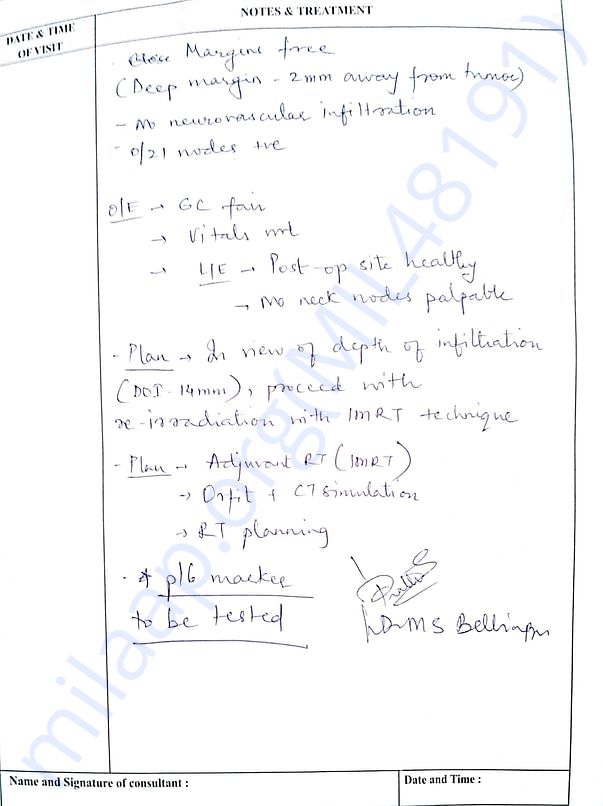 DATE & TIME
OF VISIT
NOTES & TREATMENT
Margins free
(Deep margin - 2mm away from tumor)
- No neurovascular infiltration
- 0/21 nodes +ve
O/E → GC fair
→ Vitals
→ L/E → Post-op site healthy
→ No neck nodes palpable
- Plan → In view of depth of infiltration
(DOI - 14mm), proceed with
re-irradiation with IMRT technique
- Plan → Adjuvant RT (IMRT)
→ Orfit + CT simulation
→ RT planning
* p16 marker
to be tested
Dr M S
Name and Signature of consultant :
Date and Time :
milaap.org(MIL48191)